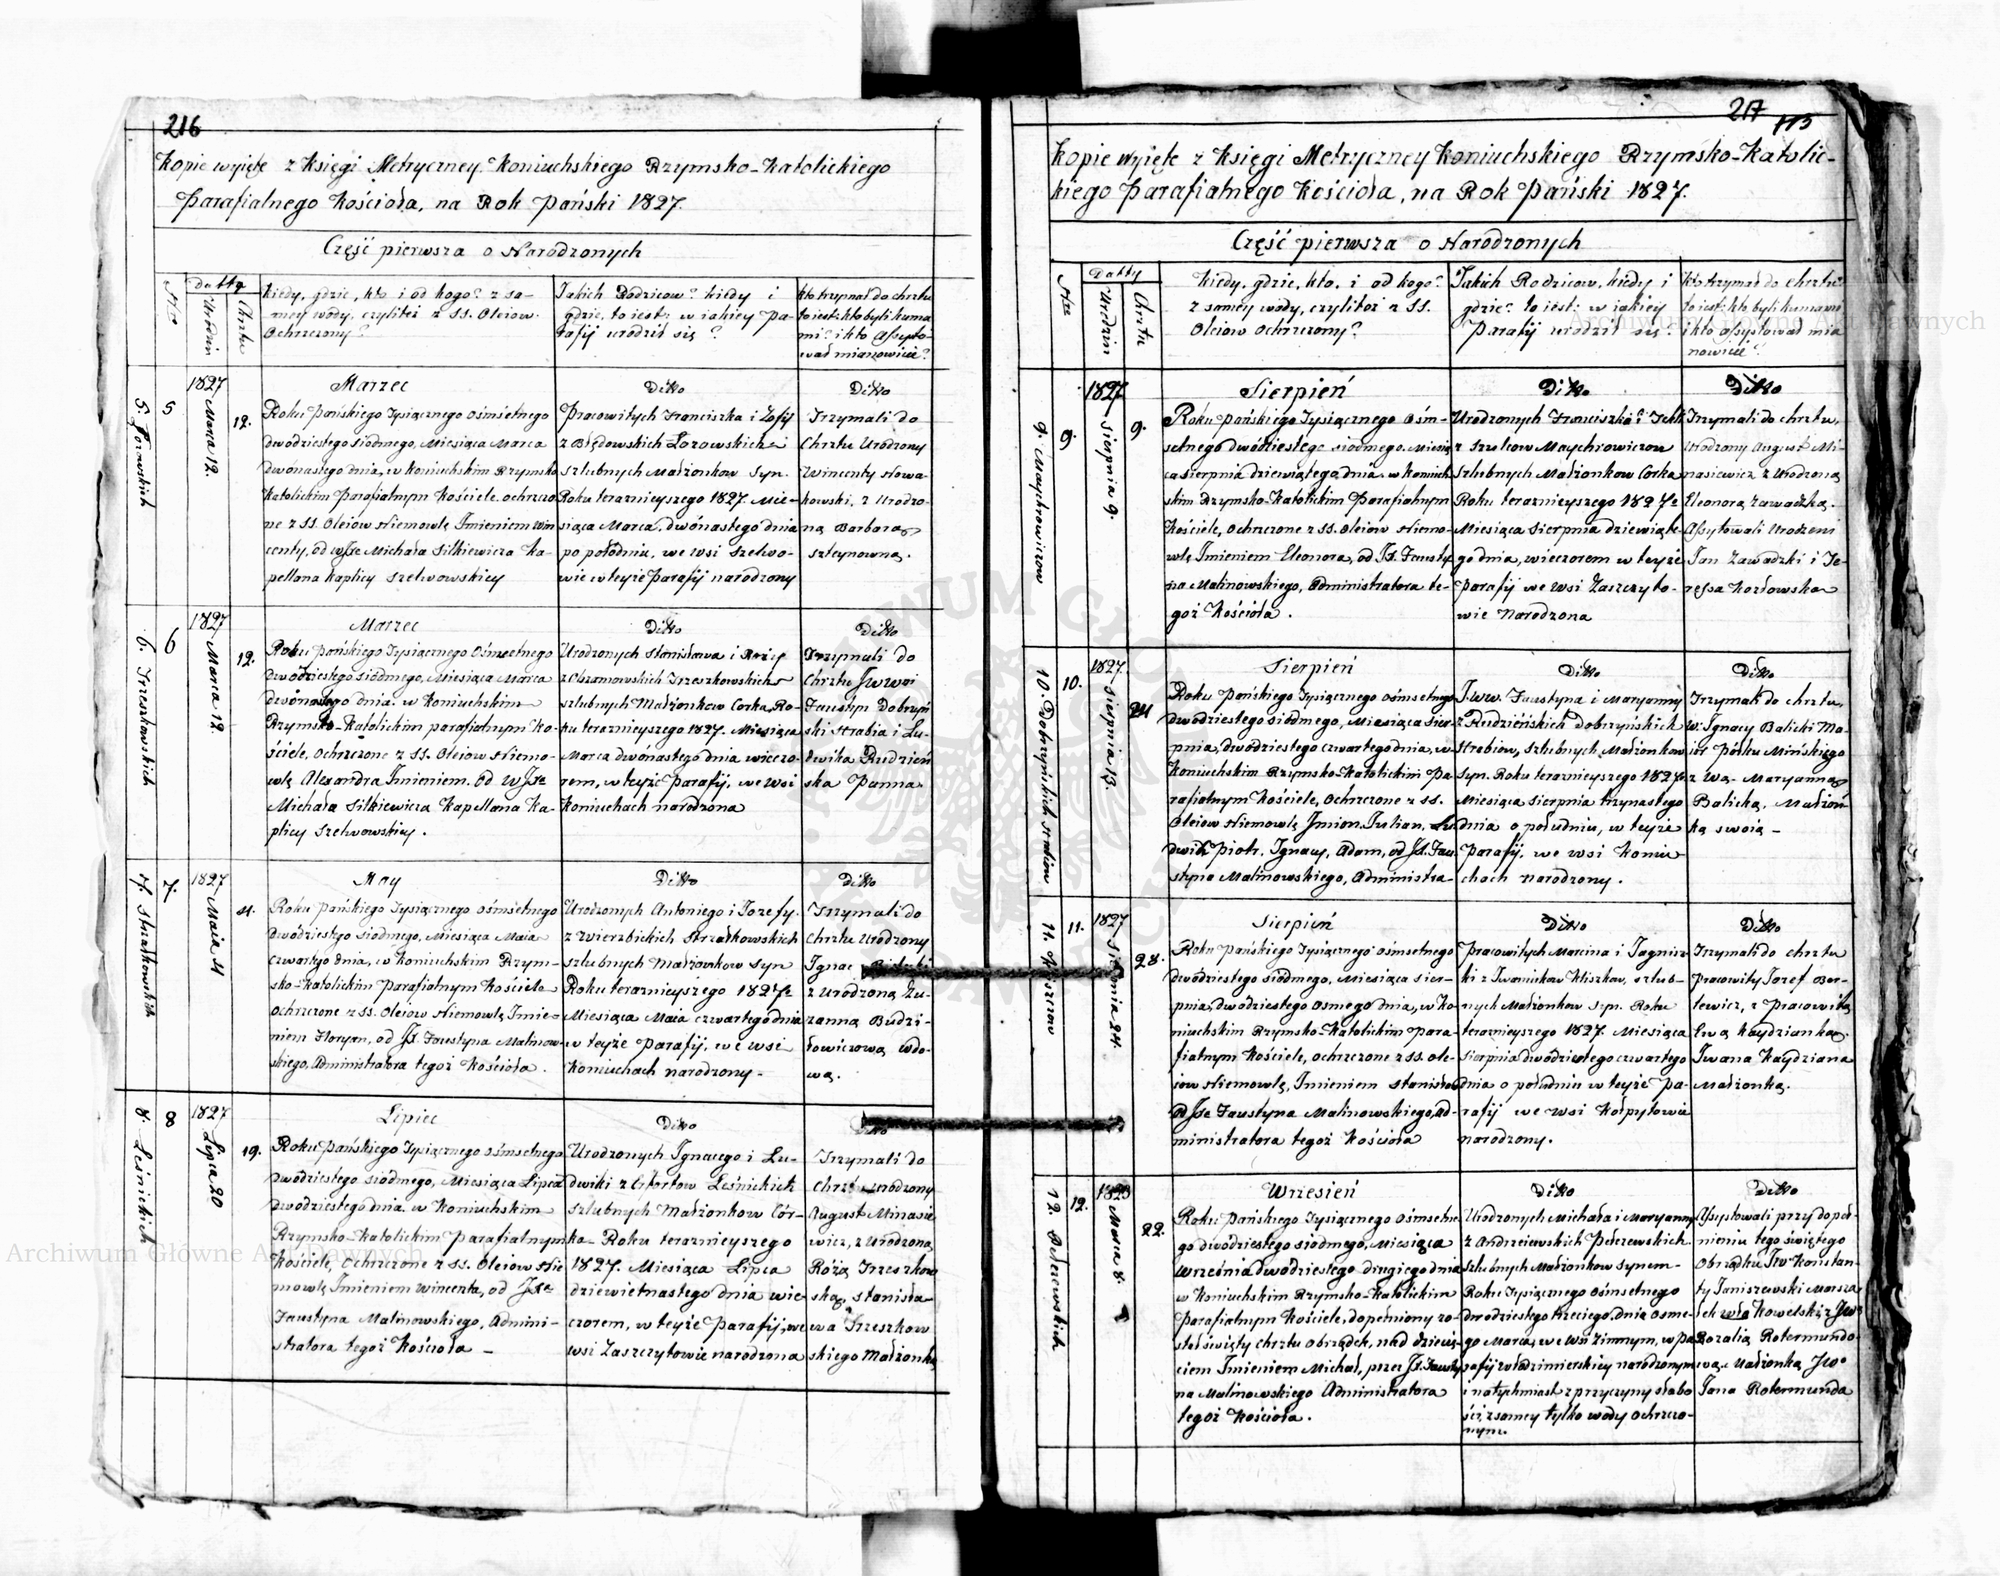 216
Kopie wyięte z Księgi Metryczney Koniuchskiego Rzymsko-Katolickiego
Parafialnego Kościoła, na Rok Pański 1827.
Część pierwsza o Narodzonych
Nro
Datty
Urodzin
Chrztu
Kiedy, gdzie, kto i od kogo? z sa-
mey wody, czyliteż z SS. Oleiow
Ochrzczony?
Jakich Rodzicow? kiedy i
gdzie, to iest: w iakiey Pa-
rafij urodził się?
Kto trzymał do chrztu
to iest: kto byli kuma
mi? i kto Assysto-
wał mianowicie?
5. Łozowskich
5
1827
Marca 12.
12.
Marzec
Roku Pańskiego Tysiącznego ośmsetnego
dwódziestego siódmego, Miesiąca Marca
dwónastego dnia, w Koniuchskim Rzymsko
Katolickim Parafialnym Kościele ochrzczo
ne z SS. Oleiow Niemowlę Imieniem Win
centy, od WJXe Michała Silkiewicza Ka-
pellana Kaplicy Szelwowskiey
Ditto
Pracowitych Franciszka i Zofij
z Błędowskich Łozowskich
szlubnych Małżonkow Syn.
Roku terazniejszego 1827. Mie-
siąca Marca, dwónastego dnia
po południu, we wsi Szelwo-
wie w teyże Parafij narodzony
Ditto
Trzymali do
Chrztu Urodzony
Wincenty Nowa-
kowski, z Urodzo-
ną Barbarą
Szteynowną.
6. Trzeszkowskich
6
1827
Marca 12
12.
Marzec
Roku Pańskiego Tysiącznego Ośmsetnego
dwódziestego siódmego, Miesiąca Marca
dwónastego dnia w Koniuchskim
Rzymsko-Katolickim parafialnym Ko-
ściele, Ochrzczone z SS. Oleiow Niemo-
wlę Alexandra Imieniem. Od WJXe
Michała Silkiewicza Kapellana Ka-
plicy Szelwowskiey.
Ditto
Urodzonych Stanisława i Rozy
z Chrzanowskich Trzeszkowskich
szlubnych Małżonkow Corka, Ro-
ku terazniejszego 1827. Miesiąca
Marca dwónastego dnia wieczo-
rem, w teyże Parafij, we wsi
Koniuchach narodzona
Ditto
Trzymali do
Chrztu JWW
Faustyn Dobryń
ski Hrabia i Lu-
dwika Rudzień
ska Panna
7. Strzałkowskich
7.
1827
Maia 4
4.
May
Roku Pańskiego Tysiącznego ośmsetnego
dwódziestego siódmego, Miesiąca Maia
czwartego dnia, w Koniuchskim Rzym-
sko-Katolickim Parafialnym Kościele
Ochrzczone z SS. Oleiow Niemowlę Imie-
niem Floryan, od JX. Faustyna Malinow-
skiego, Administratora tegoż Kościoła.
Ditto
Urodzonych Antoniego i Jozefy
z Wierzbickich Strzałkowskich
szlubnych Małżonkow Syn
Roku terazniejszego 1827
Miesiąca Maia czwartego dnia
w teyże Parafij, we wsi
Koniuchach narodzony-
Ditto
Trzymali do
Chrztu Urodzony
Ignac
z Urodzoną Zu-
zanną Budzi-
łowiczową wdo-
wą.
8. Leśnickich
8
1827
Lipca 20
19.
Lipiec
Roku Pańskiego Tysiącznego ośmsetnego
dwódziestego siódmego, Miesiąca Lipca
dwódziestego dnia w Koniuchskim
Rzymsko-Katolickim Parafialnym
Kościele, Ochrzczone z SS. Oleiow Nie
mowlę Imieniem Wincenta, od JXe
Faustyna Malinowskiego, Admini-
stratora tegoż Kościoła -
Ditto
Urodzonych Ignacego i Lu-
dwiki z Leśnickich
szlubnych Małżonkow Cór-
ka- Roku terazniejszego
1827. Miesiąca Lipca
dziewietnastego dnia wie-
czorem, w teyże Parafij, we
wsi Zaszczytowie narodzona
Ditto
Trzymali do
Chrztu Urodzony
August Minasie
wicz, z Urodzoną
Rożą Trzeszkow
ską, Stanisła-
wa Trzeszkow
skiego Małżonką
217
113
Kopie wyięte z Księgi Metryczney Koniuchskiego Rzymsko-Katolic-
kiego Parafialnego Kościoła, na Rok Pański 1827.
Część pierwsza o Narodzonych
Nro
Datty
Urodzin
Chrztu
Kiedy, gdzie, kto, i od kogo?
z samey wody, czyliteż z SS.
Oleiow Ochrzczony?
Jakich Rodzicow, kiedy i
gdzie? to iest: w iakiey
Parafij urodził się?
Kto trzymał do Chrztu?
to iest: kto byli kumami
i kto Assystował mia
nowicie?
9. Maychrowiczow
9.
1827
Sierpnia 9.
9.
Sierpień
Roku Pańskiego Tysiącznego Ośm-
setnego dwódziestego siódmego, Miesią
ca Sierpnia dziewiątego dnia, w Koniuch
skim Rzymsko-Katolickim Parafialnym
Kościele, Ochrzczone z SS. Oleiow Niemo-
wlę Imieniem Eleonora, od JX. Fausty-
na Malinowskiego, Administratora te-
goż Kościoła.
Ditto
Urodzonych Franciszka i Tekli
z Szulcow Maychrowiczow
szlubnych Małżonkow Corka
Roku terazniejszego 1827
Miesiąca Sierpnia dziewiąte-
go dnia, wieczorem w teyże
Parafij we wsi Zaszczyto-
wie Narodzona
Ditto
Trzymali do chrztu,
Urodzony August Mi-
nasiewicz z Urodzoną
Eleonorą Zawadzką.
Assystowali Urodzeni
Jan Zawadzki i Te-
ressa Kozłowska
10. Dobrzyńskich Hrabiow
10.
1827.
Sierpnia 13.
24
Sierpień
Roku Pańskiego Tysiącznego ośmsetnego
dwódziestego siódmego, Miesiąca Sier-
pnia, dwódziestego czwartego dnia, w
Koniuchskim Rzymsko-Katolickim Pa-
rafialnym Kościele, Ochrzczone z SS.
Oleiow Niemowlę Imion Julian, Lu-
dwik Piotr, Ignacy, Adam, od JX. Fau
styna Malinowskiego, Administra-
Ditto
J.WW. Faustyna i Maryanny
z Rudzińskich Dobrzyńskich
Hrabiow, szlubnych Małżonkow
Syn. Roku terazniejszego 1827
Miesiąca Sierpnia trzynastego
dnia o południu, w teyże
Parafij, we wsi Koniu
chach narodzony.
Ditto
Trzymał do chrztu,
W. Ignacy Balicki Ma-
ior Półku Mińskiego
z Wą Maryanną
Balicką, Małżon
ką swoią -
11. Kliszzow
11.
1827
Sierpnia 24.
28.
Sierpień
Roku Pańskiego Tysiącznego ośmsetnego
dwódziestego siódmego, Miesiąca Sier-
pnia, dwódziestego osmego dnia, w Ko-
niuchskim Rzymsko-Katolickim Para-
fialnym Kościele, Ochrzczone z SS. Ole-
iow Niemowlę, Imieniem Stanisław
od JXe Faustyna Malinowskiego, Ad-
ministratora tegoż Kościoła
Ditto
Pracowitych Marcina i Jagnisz
ki z Iwaniukow Kliszzow, szlub-
nych Małżonkow Syn. Roku
terazniejszego 1827. Miesiąca
Sierpnia dwódziestego czwartego
dnia o południu w teyże Pa-
rafij we wsi Kołpytowie
narodzony.
Ditto
Trzymali do chrztu
Pracowity Jozef Bor-
tewicz, z Pracowitą
Ewą Kaydzianką
Iwana Kaydziana
Małżonką.
12. Pelczewskich
12.
1823
Marca 8.
22.
Wrzesień
Roku Pańskiego Tysiącznego Ośmsetne
go dwódziestego siódmego, Miesiąca
Września dwódziestego drugiego dnia
w Koniuchskim Rzymsko-Katolickim
Parafialnym Kościele, dopełniony zo-
stał święty Chrztu obrządek, nad dziecię-
ciem Imieniem Michał, przez JX. Fausty
na Malinowskiego Administratora
tegoż Kościoła.
Ditto
Urodzonych Michała i Maryanny
z Andrzeiewskich Pelczewskich
szlubnych Małżonkow Synem-
Roku Tysiącznego ośmsetnego
dwódziestego trzeciego, dnia osme-
go Marca, we wsi Zimnym, w pa
rafij włodzimierskiey narodzonym
i natychmiast z przyczyny słabo
ści z samey tylko wody ochrzczo-
nym.
Ditto
Assystowali przy dopeł-
nieniu tego świętego
Obrządku JW Konstan-
ty Janiszewski Marsza
łek Kowelski z JW
Rozalią Rotermundo
wą, Małżonką JWo
Jana Rotermunda
Archiwum Główne Akt Dawnych